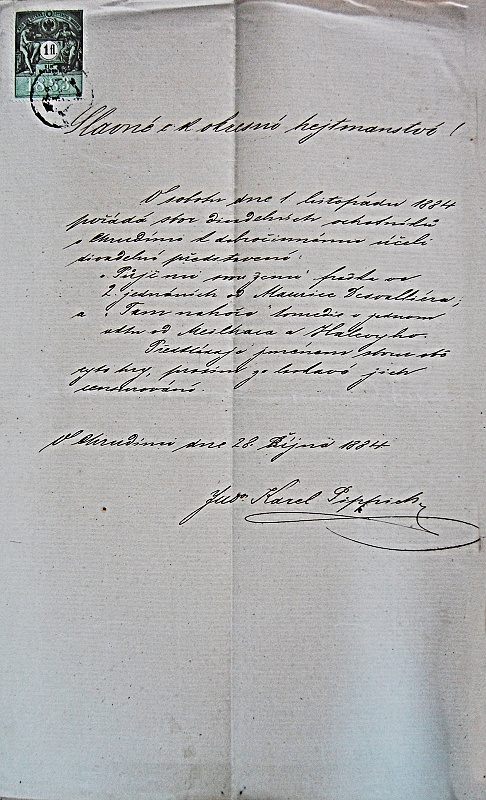 1 fl
1883
Slavné c k okresní hejtmanství!
V sobotu dne 1 listopadu 1884
pořádá sbor divadelních ochotníků
v Chrudimi k dobročinnému účeli
divadelní představení:
„Půjč mi svou ženu" fraška ve
2. jednáních od Maurice Desvalliéra;
a „Tam nahoře" komedie v jednom
aktu od Meilhaca a Halevyho.
Předkládaje jménem sboru obě
tyto hry, prosím za laskavé jich
censurování.
V Chrudimi dne 28. Října 1884
JUDr Karel Pippich